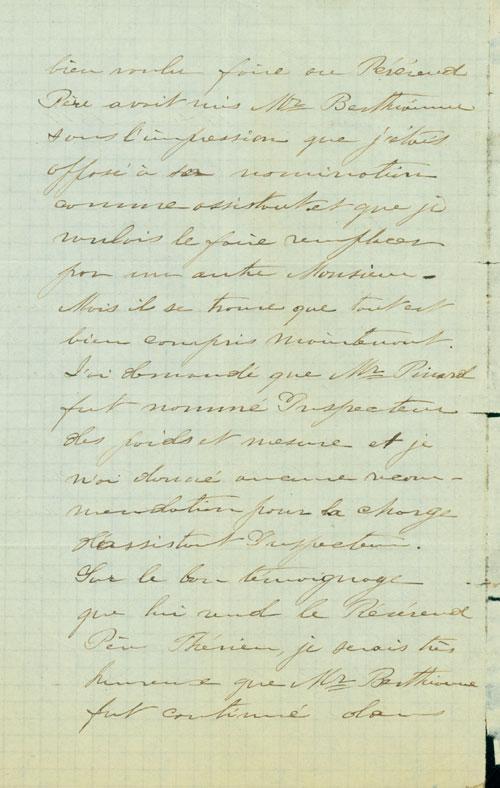 bien voulu faire au Révérend
Père avait mis Mr Berthiaume
sous l'impression que j'étais
opposé à sa nomination
comme assistant et que je
voulais le faire remplacer
par un autre Monsieur -
Mais il se trouve que tout est
bien compris maintenant.
J'ai demandé que Mr Pinard
fut nommé Inspecteur
des poids et mesure et je
n'ai donné aucune recom-
mendation pour la charge
d'assistant Inspecteur.
Sur le bon témoignage
que lui rend le Révérend
Père Thérien, je serais très
heureuse que Mr Berthiaume
fut continué dans